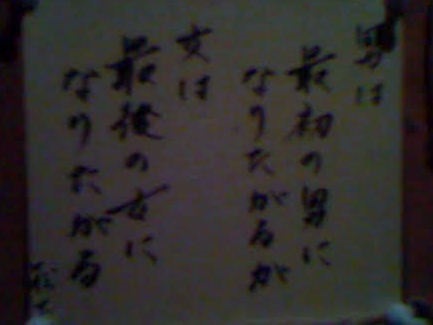 男は
最初の男に
なりたがるが
女は
最後の女に
なりたがる